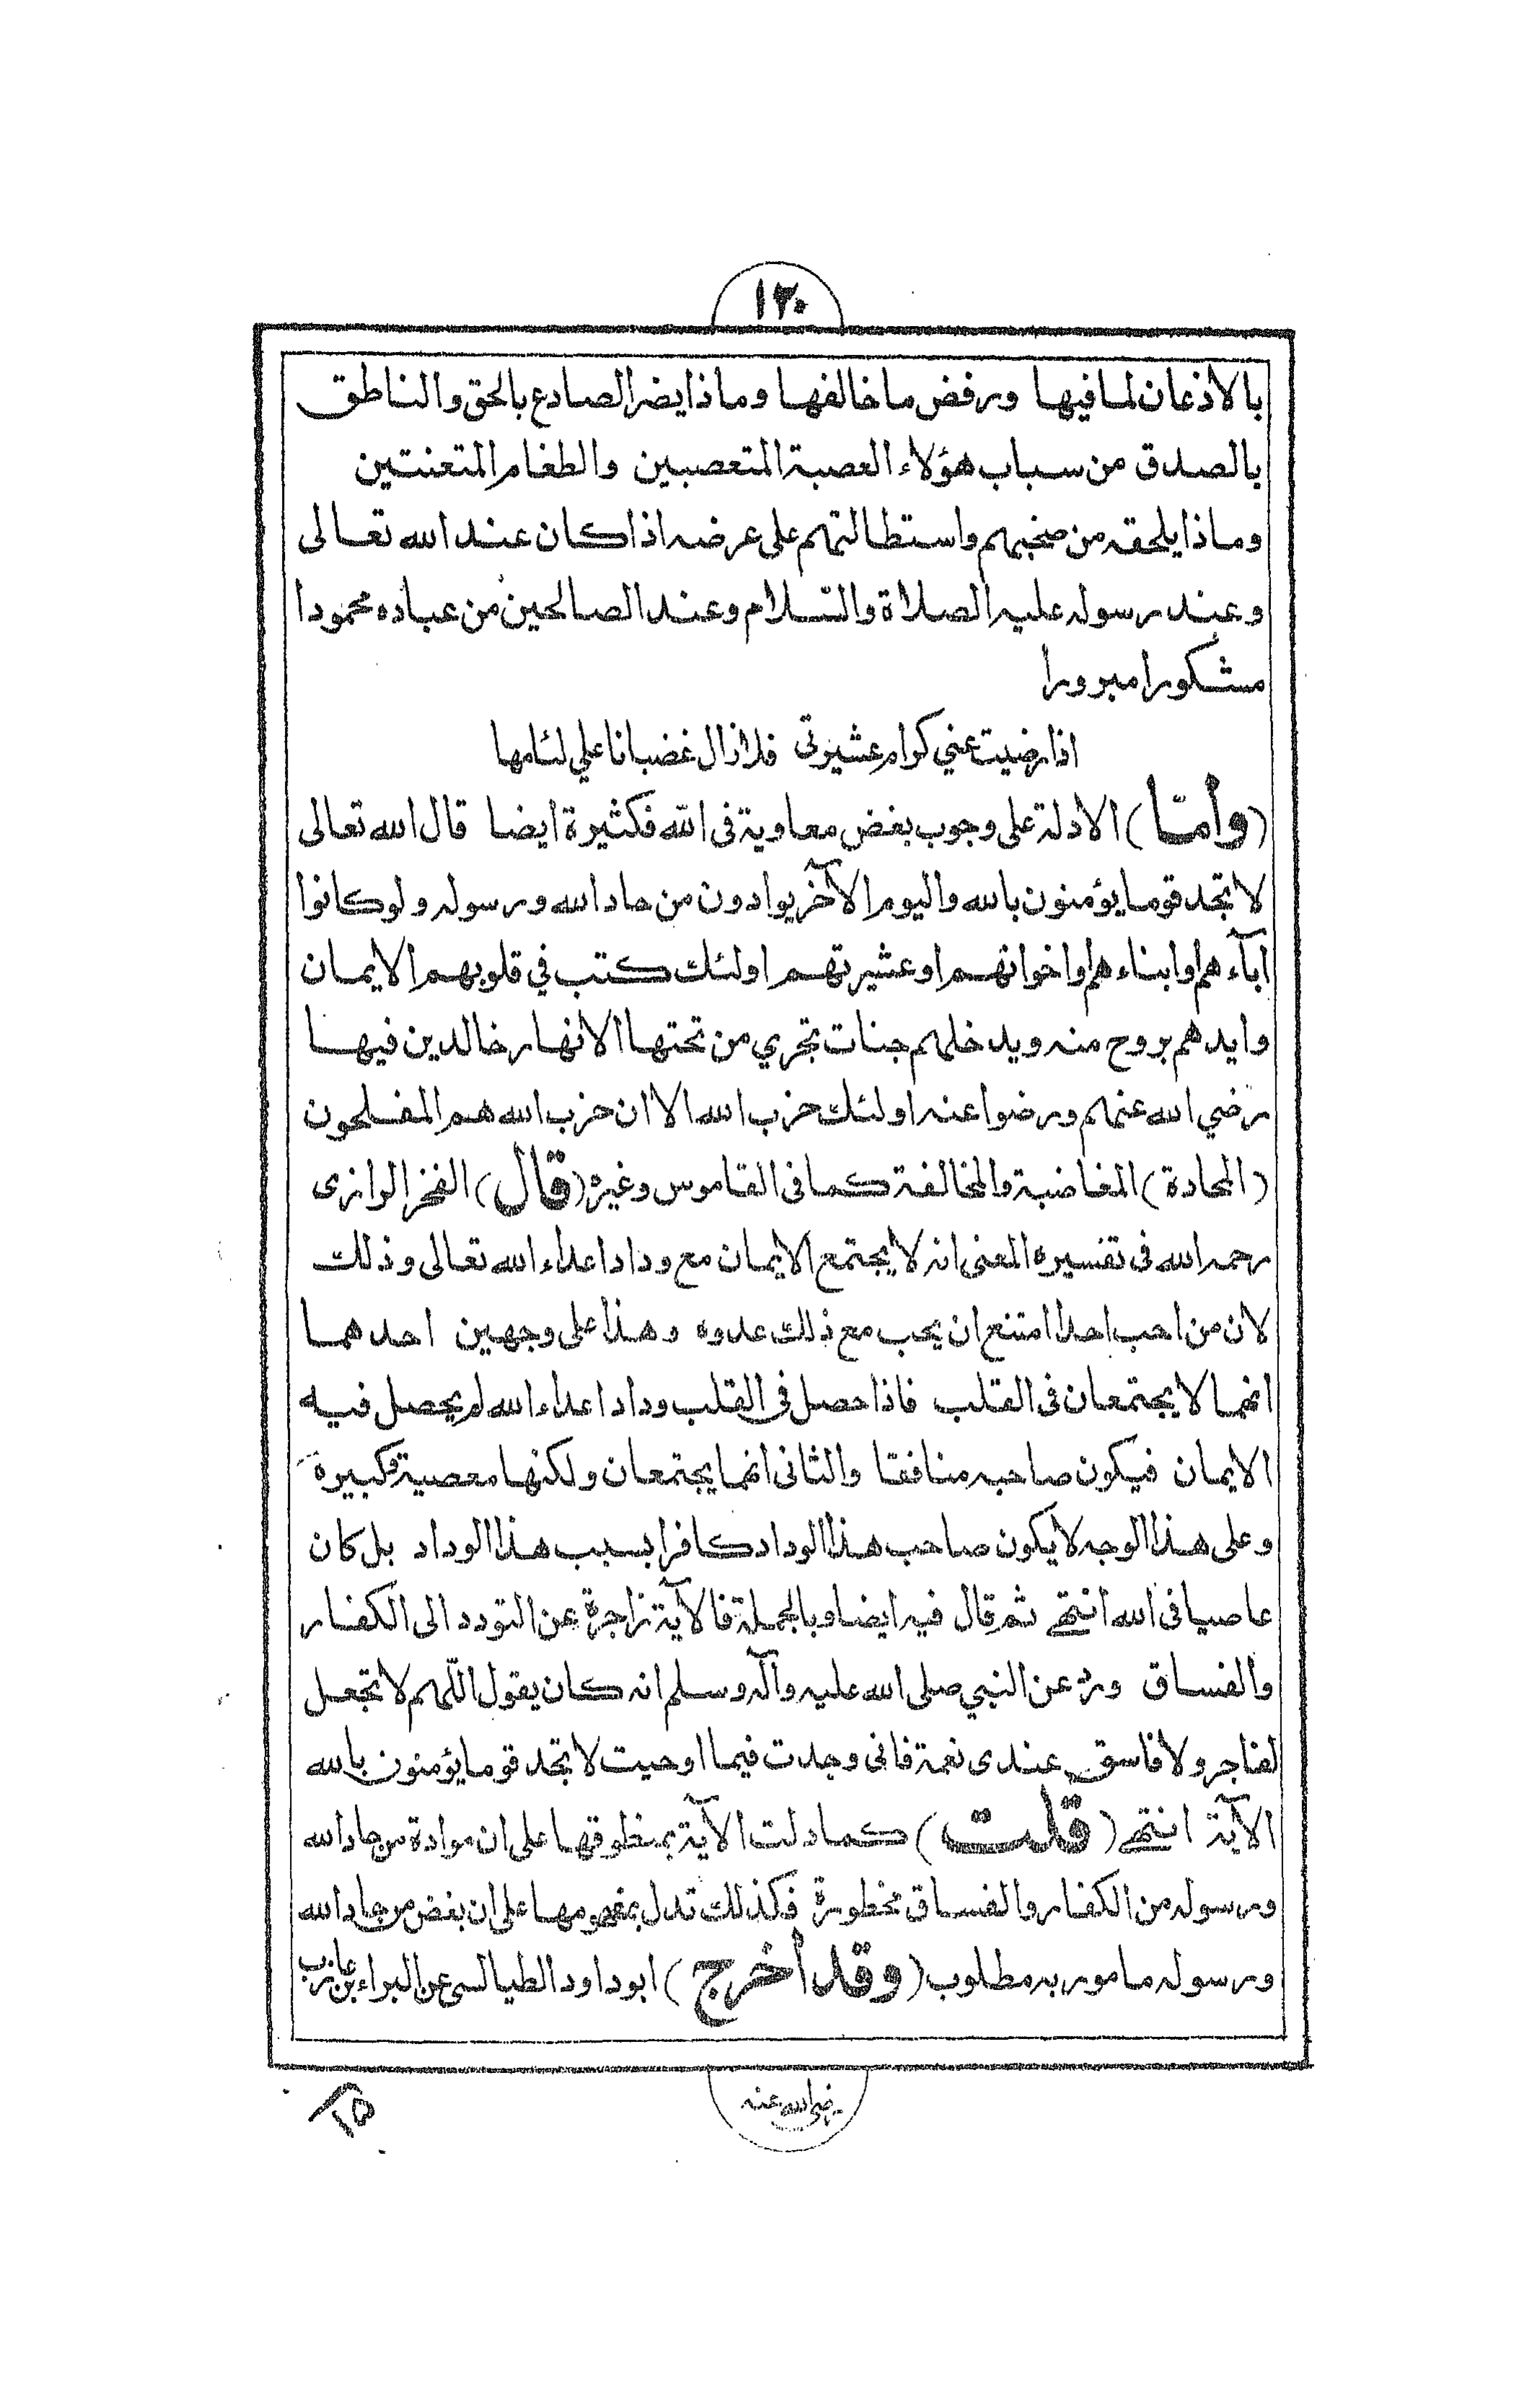 ١٢٠
بالاذعان لما فيها ورفض ما خالفها وماذا يضر الصادع بالحق والناطق
بالصدق من سباب هؤلاء العصبة المتعصبين والطغام المتعنتين
وماذا يلحقه من صخبهم واستطالتهم على عرضه اذا كان عند الله تعالى
وعند رسوله عليه الصلاة والسّلام وعند الصالحين من عباده محمودا
مشكورا مبرورا
اذا رضيت عني كرام عشيرتى فلا زال غضبانا علي لئامها
(وأمّا) الادلة على وجوب بغض معاوية فى اللّه فكثيرة ايضا قال الله تعالى
لا تجد قوما يؤمنون بالله واليوم الآخر يوادون من حاد الله ورسوله ولو كانوا
اباءهم او ابناءهم او اخوانهم او عشيرتهم اولئك كتب في قلوبهم الايمان
وايدهم بروح منه ويدخلهم جنات تجري من تحتها الانهار خالدين فيها
رضي الله عنهم ورضوا عنه اولئك حزب الله الا ان حزب الله هم المفلحون
(المحادة) المغاضبة والمخالفة كما فى القاموس وغيره (قال) الفخر الرازى
رحمه الله فى تفسيره المعنى انه لا يجتمع الايمان مع وداد اعداء الله تعالى وذلك
لان من احب احدا امتنع ان يحب مع ذلك عدوه وهذا على وجهين احدهما
انهما لا يجتمعان فى القلب فاذا حصل فى القلب وداد اعداء الله لم يحصل فيه
الايمان فيكون صاحبه منافقا والثانى انهما يجتمعان ولكنها معصية وكبيرة
وعلى هذا الوجه لا يكون صاحب هذا الوداد كافرا بسبب هذا الوداد بل كان
عاصيا فى الله انتهى ثم قال فيه ايضا وبالجملة فالآية زاجرة عن التودد الى الكفار
والفساق ورد عن النبي صلى الله عليه وآله وسلم انه كان يقول اللّهم لا تجعل
لفاجر ولا فاسق عندى نعمة فانى وجدت فيما اوحيت لا تجد قوما يؤمنون بالله
الآية انتهى (قلت) كما دلت الآية بمنطوقها على ان موادة من حاد الله
ورسوله من الكفار والفساق محظورة فكذلك تدل بمفهومها على ان بغض من حاد الله
ورسوله مامور به مطلوب (وقد أخرج) ابو داود الطيالسى عن البراء بن عازب
رضى الله عنه